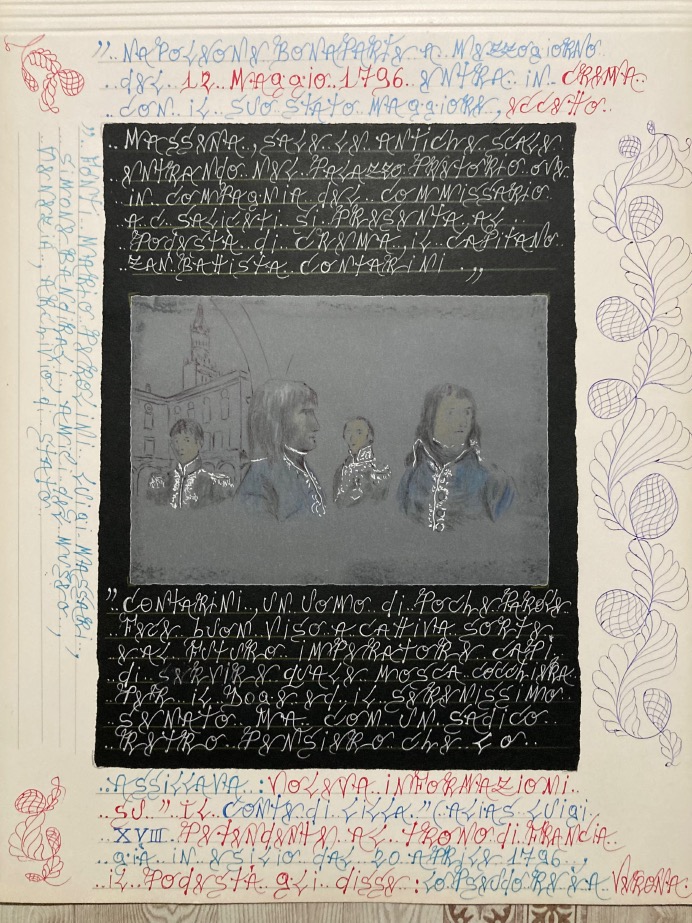 „ NAPOLEONE BONAPARTE A MEZZOGIORNO
DEL 12 MAGGIO 1796 ENTRA IN CREMA
CON IL SUO STATO MAGGIORE, ECCETTO
MASSENA, SALE LE ANTICHE SCALE
ENTRANDO NEL PALAZZO PRETORIO OVE
IN COMPAGNIA DEL COMMISSARIO
A.C. SALICETI SI PRESENTA AL
PODESTÀ di CREMA IL CAPITANO
ZAN BATTISTA CONTARINI. „
„ CONTARINI, UN UOMO di POCHE PAROLE
FECE BUON VISO A CATTIVA SORTE,
E AL FUTURO IMPERATORE CAPÌ
di SERVIRE QUALE MOSCA COCCHIERA
PER IL DOGE ED IL SERENISSIMO
SENATO MA CON UN SADICO
RETRO PENSIERO CHE LO
ASSILLAVA : VOLEVA INFORMAZIONI
SU " IL CONTE di LILLA " (ALIAS LUIGI
XVIII PETENDENTE AL TRONO di FRANCIA
GIÀ IN ESILIO DAL 20 APRILE 1796,
IL PODESTÀ GLI DISSE : LO PSEUDO RE È A VERONA
„ FONT. MARIO PEROLINI, LUIGI MASSARI,
SIMONE BANDIRALI, AMICI DEL MUSEO,
VENEZIA, ARCHIVIO di STATO